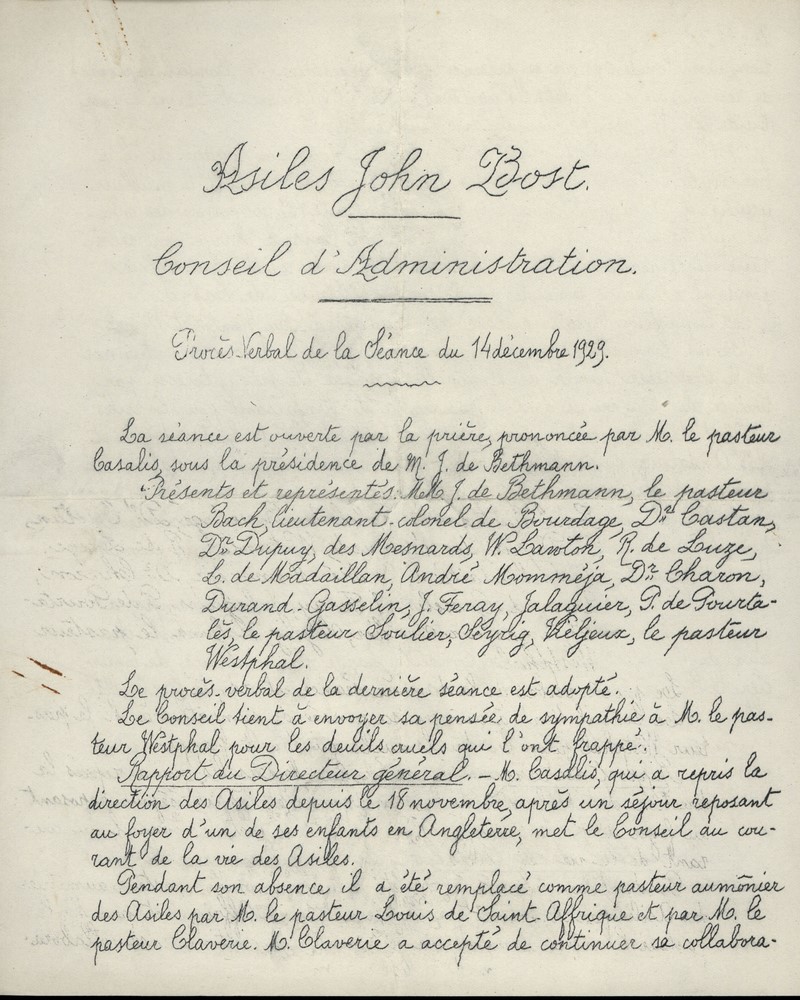 Asiles John Bost.
Conseil d'Administration.
Procès-Verbal de la Séance du 14 décembre 1929.
La séance est ouverte par la prière, prononcée par M. le pasteur
Casalis, sous la présidence de M. J. de Bethmann.
Présents et représentés: MM. J. de Bethmann, le pasteur
Bach, lieutenant-colonel de Bourdage, Dr Castan,
Dr Dupuy, des Mesnards, W. Lawton, R. de Luze,
L. de Madaillan, André Momméja, Dr Charon,
Durand-Gasselin, J. Feray, Jalaguier, P. de Pourta-
lès, le pasteur Soulier, Seyrig, Vieljeux, le pasteur
Westphal.
Le procès-verbal de la dernière séance est adopté.
Le Conseil tient à envoyer sa pensée de sympathie à M. le pas-
teur Westphal pour les deuils cruels qui l'ont frappé.
Rapport du Directeur général. - M. Casalis, qui a repris la
direction des Asiles depuis le 18 novembre, après un séjour reposant
au foyer d'un de ses enfants en Angleterre, met le Conseil au cou-
rant de la vie des Asiles.
Pendant son absence il a été remplacé comme pasteur aumônier
des Asiles par M. le pasteur Louis de Saint-Affrique et par M. le
pasteur Claverie. M. Claverie a accepté de continuer sa collabora-